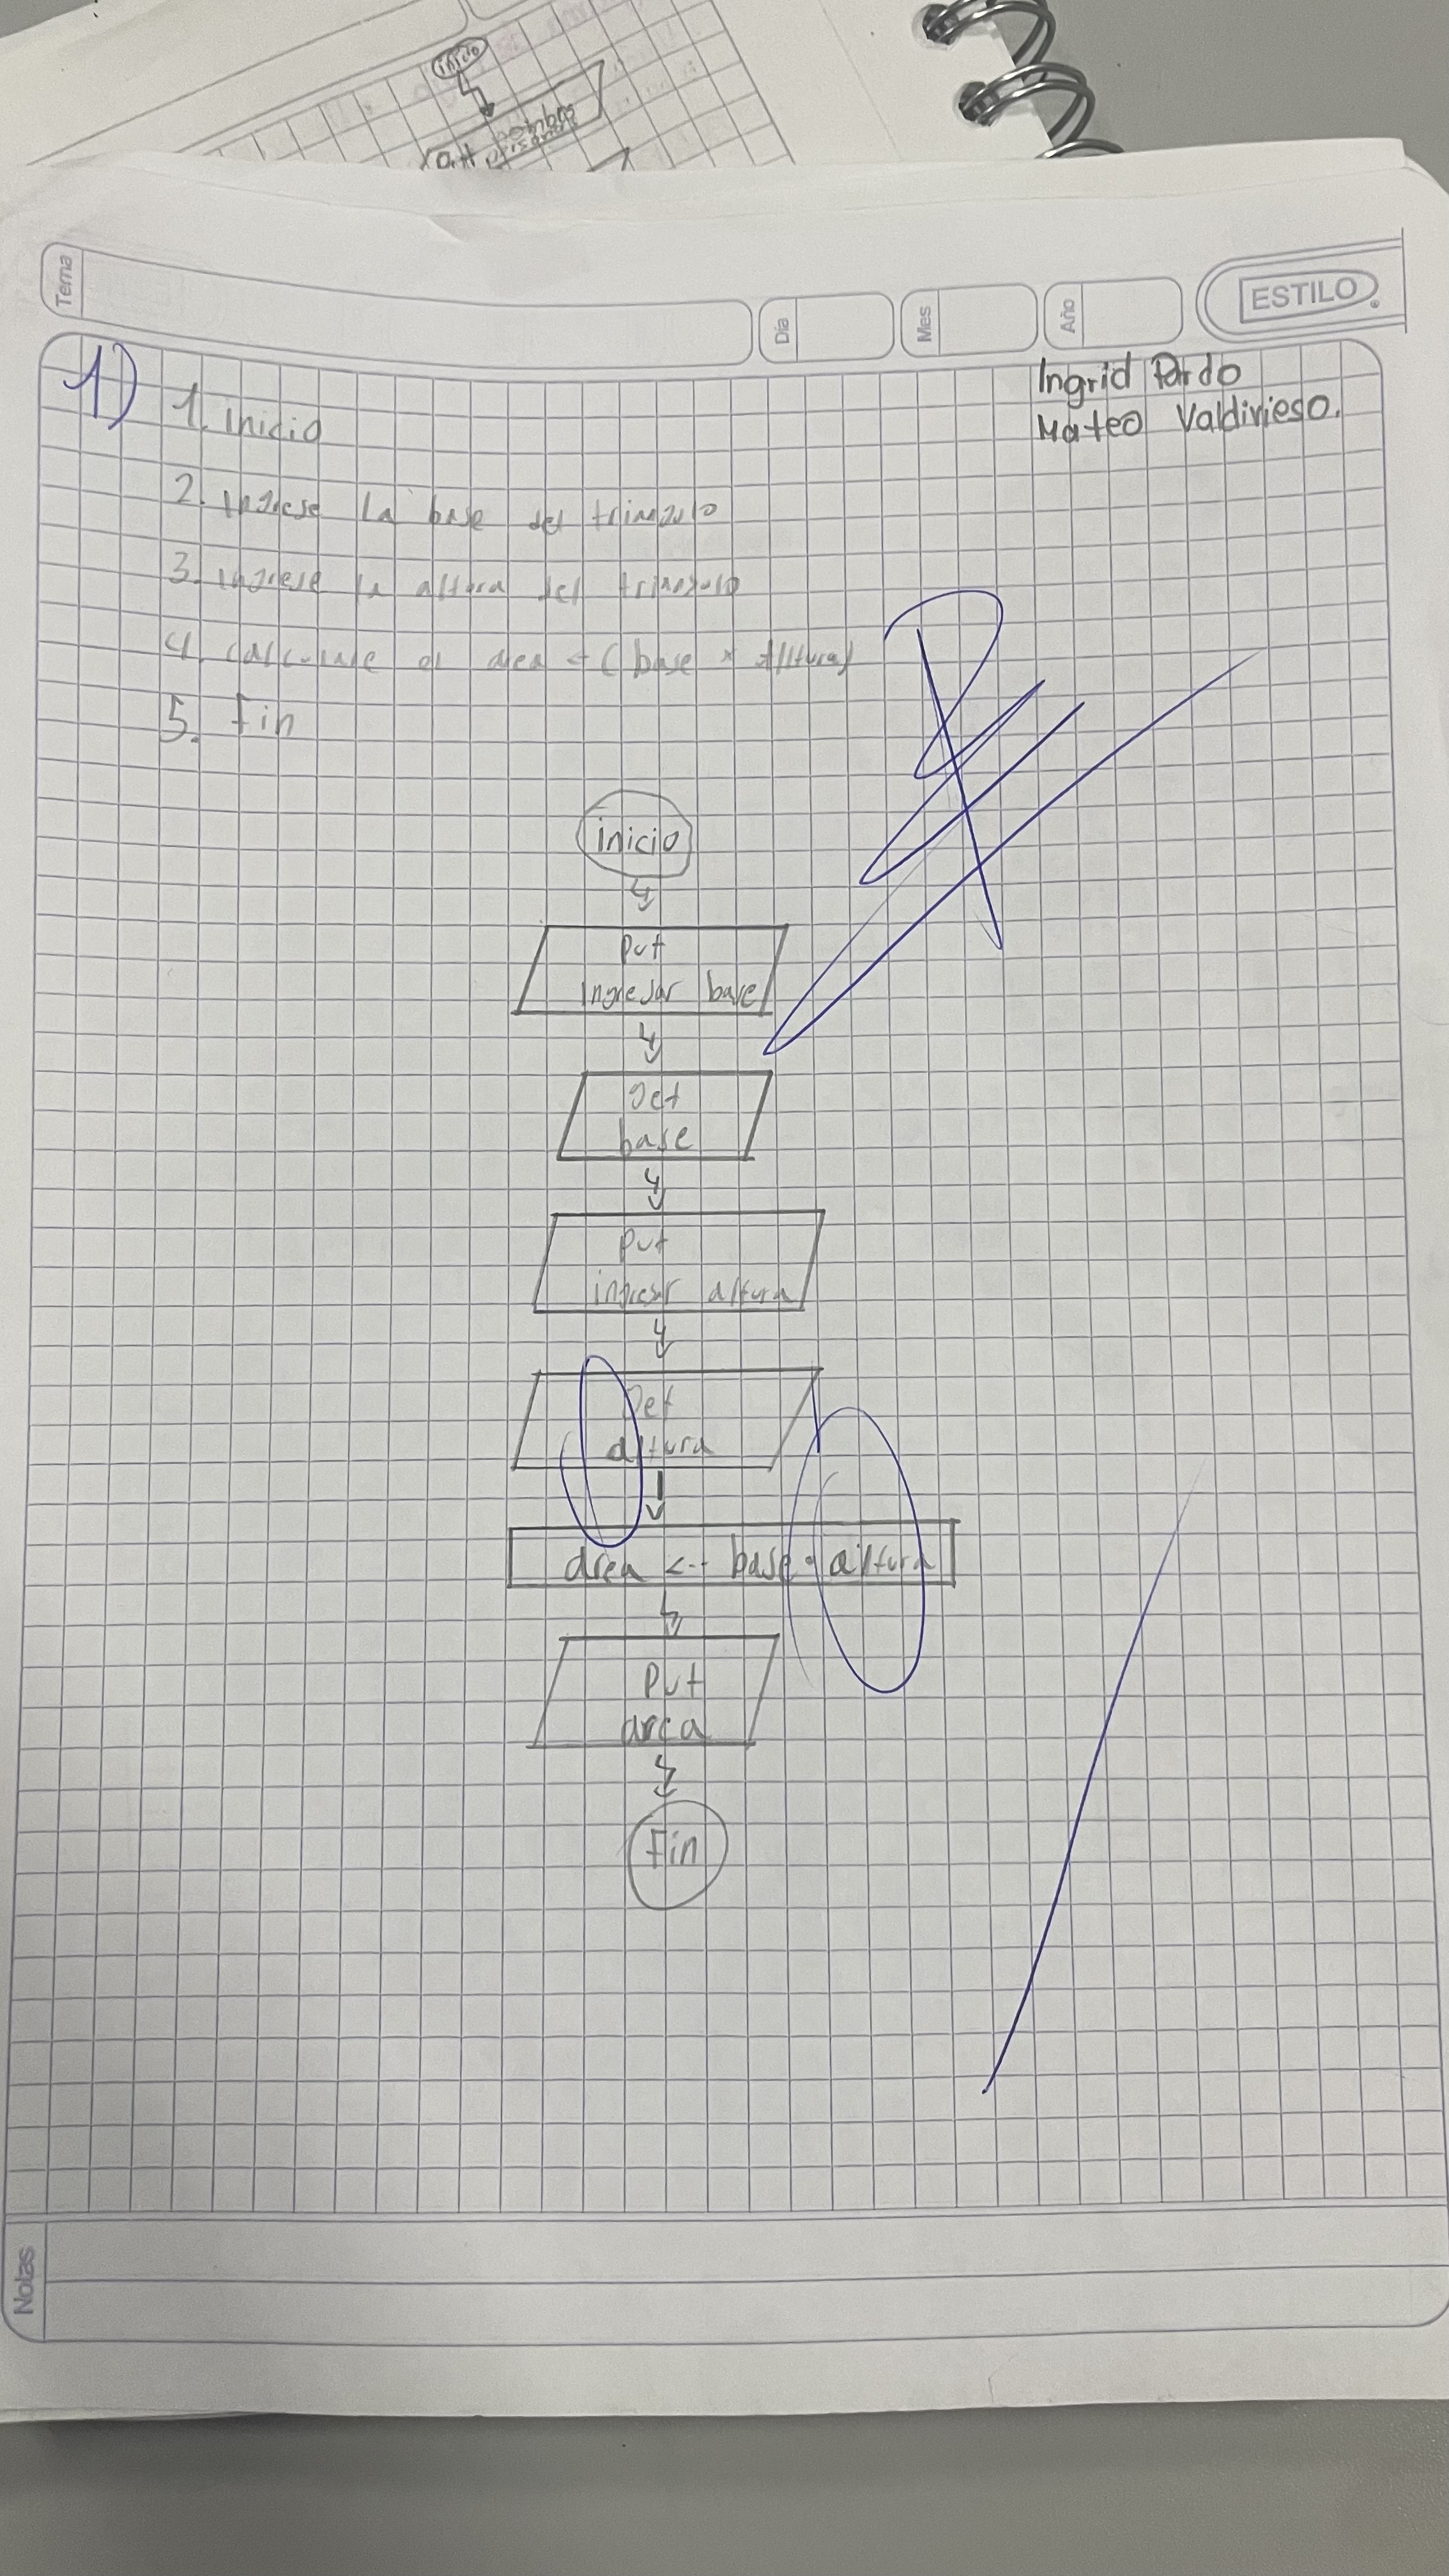 inicio
Tema
Día
Mes
Año
ESTILO
Ingrid Pardo
Mateo Valdivieso.
1) 1. inicio
2. Ingrese la base del triangulo
3. ingrese la altura del triangulo
4. calculare el area ← (base * Alltura)
5. Fin
inicio
Put
Ingresar base
Get
base
Put
ingresar altura
Get
altura
area <-- base * altura
Put
area
Fin
Notas